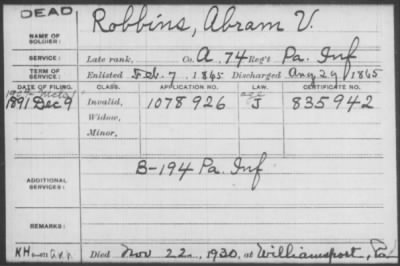 DEAD
Robbins, Abram V.
NAME OF SOLDIER:
SERVICE: Late rank, Co. A. 74 Reg't Pa. Inf
TERM OF SERVICE: Enlisted Feb. 7, 1865 Discharged Aug 29, 1865
DATE OF FILING. CLASS. APPLICATION NO. LAW. CERTIFICATE NO.
1891 Dec 9 Invalid, 1078926 J 835942
Widow,
Minor,
ADDITIONAL SERVICES: B-194 Pa. Inf
REMARKS:
Died Nov 22, 1930, at Williamsport, Pa